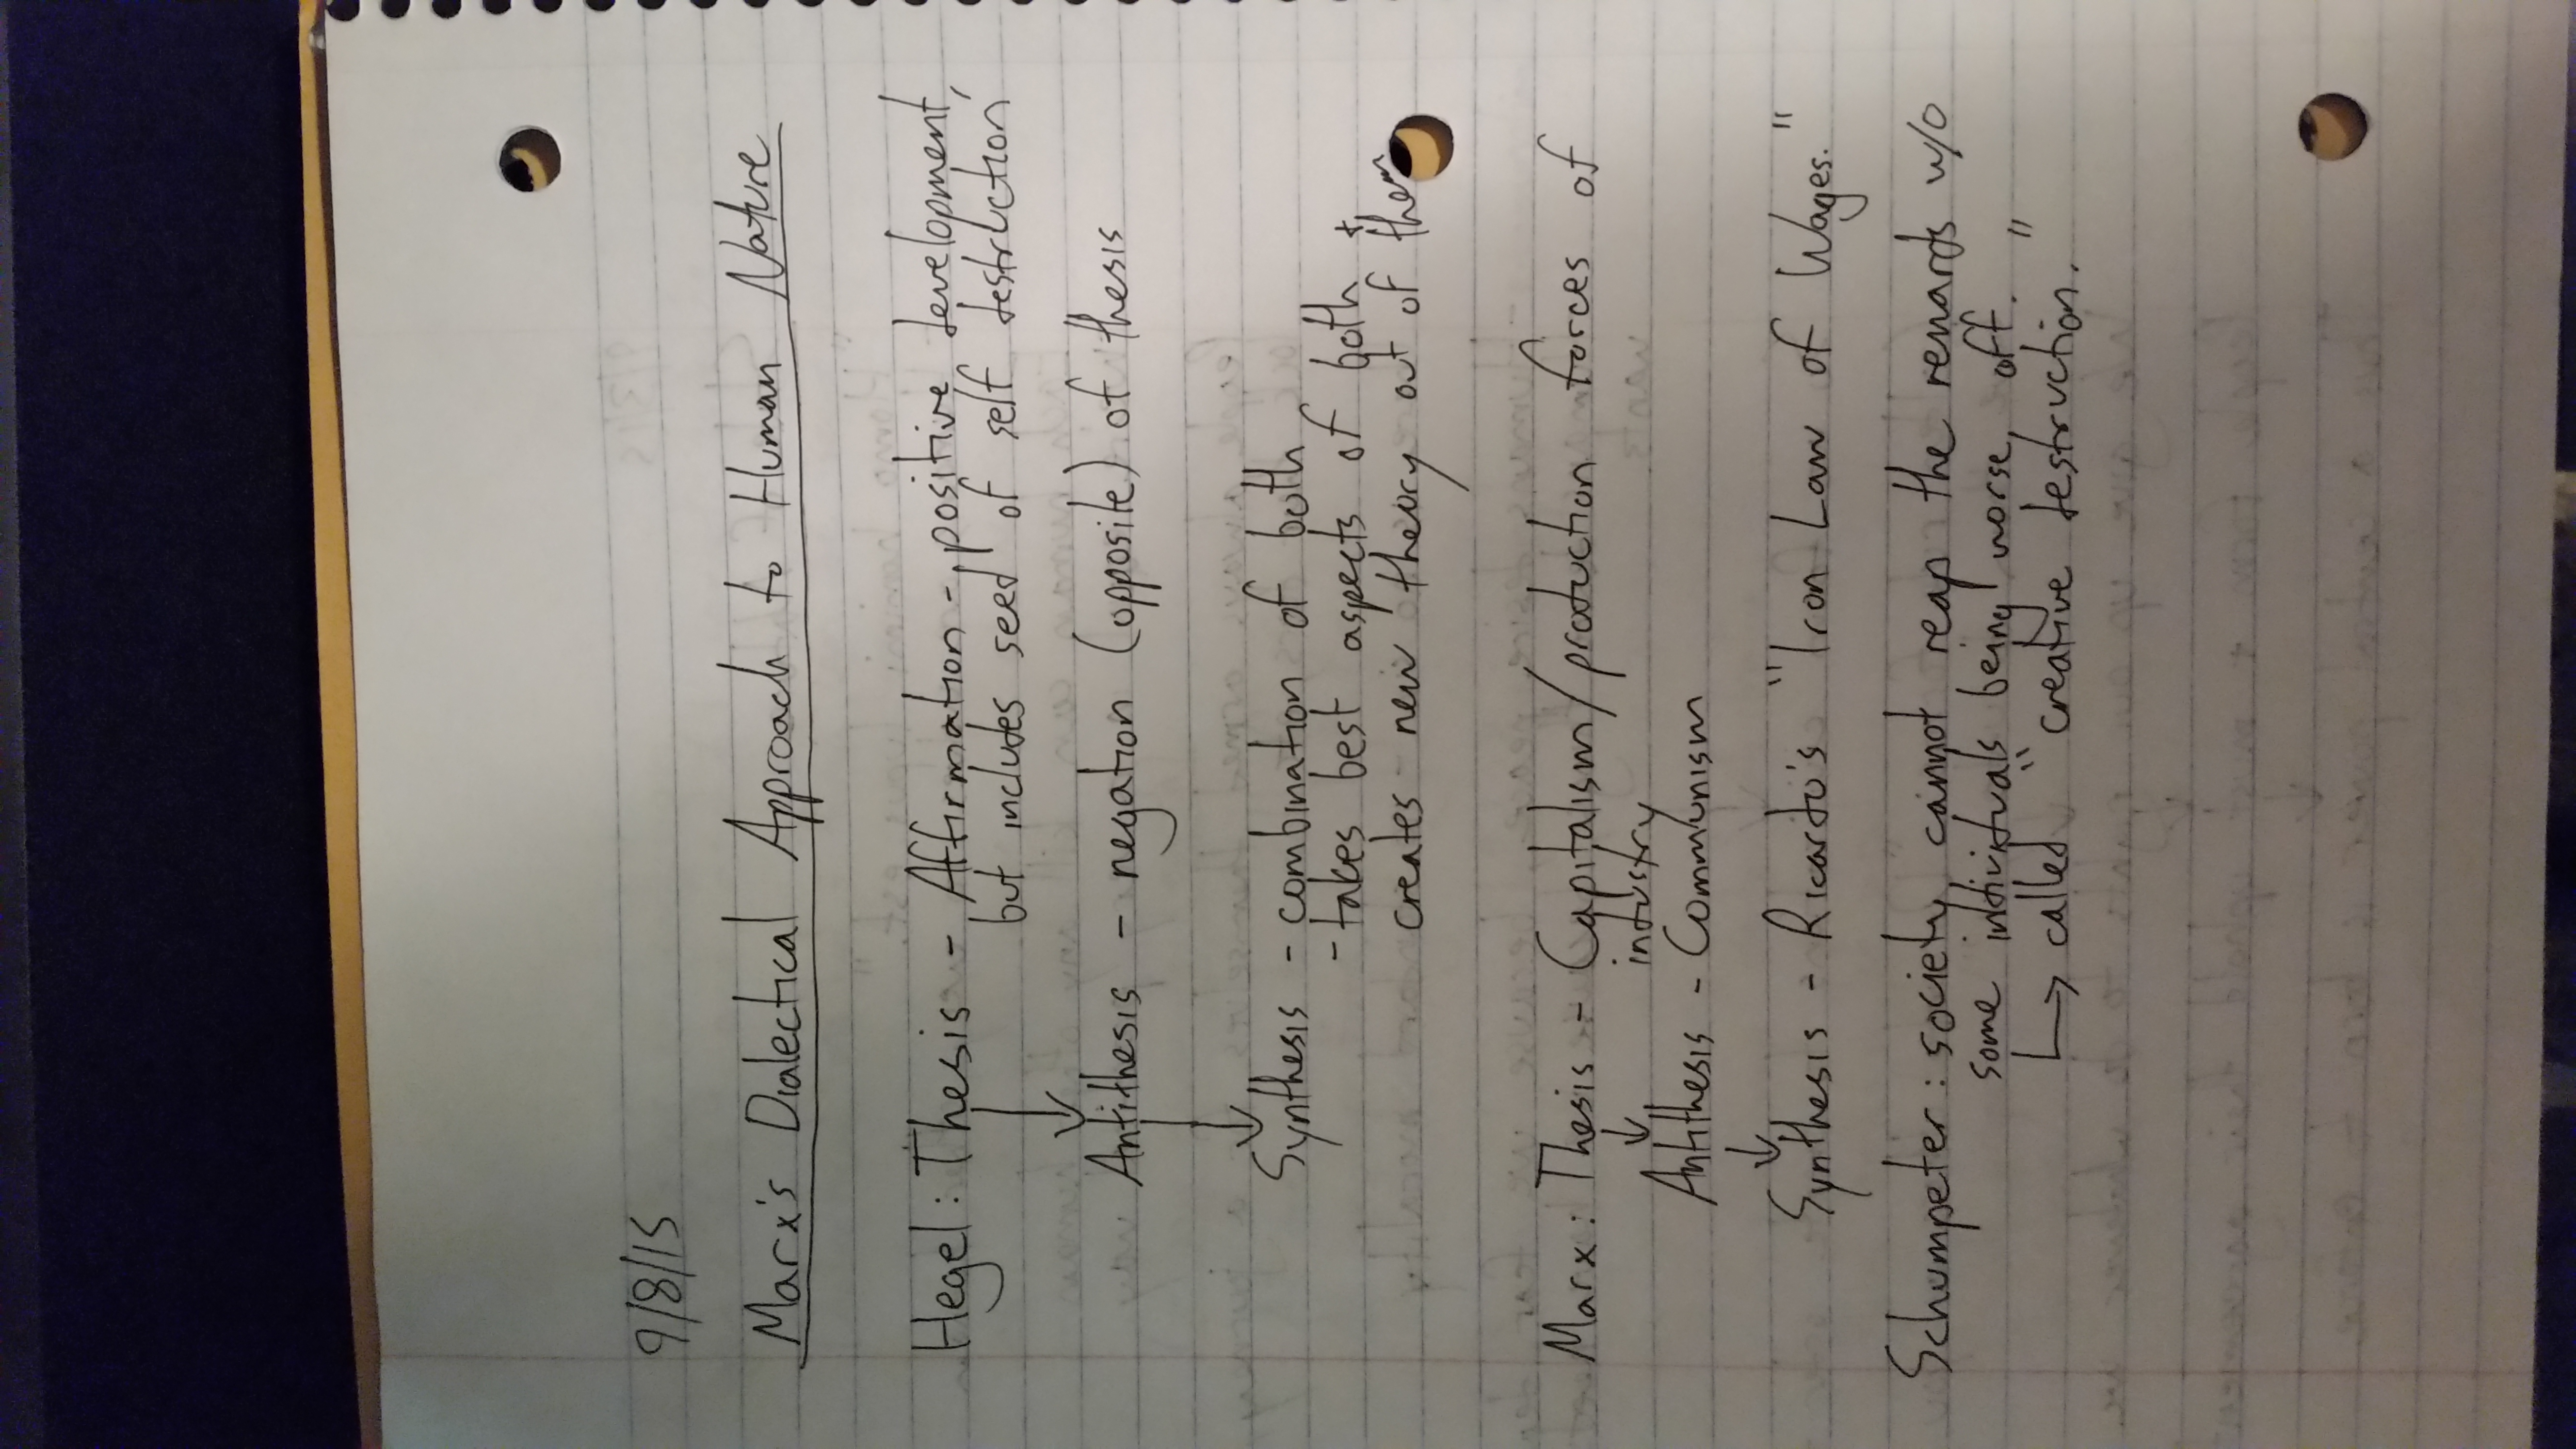 9/8/15
Marx's Dialectical Approach to Human Nature
Hegel: Thesis - Affirmation - positive development,
but includes seed of self destruction
Antithesis - negation (opposite) of thesis
Synthesis - combination of both
- takes best aspects of both +
creates new theory out of them
Marx: Thesis - Capitalism/production forces of
industry
Antithesis - Communism
Synthesis - Ricardo's "Iron Law of Wages."
Schumpeter: society cannot reap the rewards w/o
some individuals being worse off.
↳ called "creative destruction."